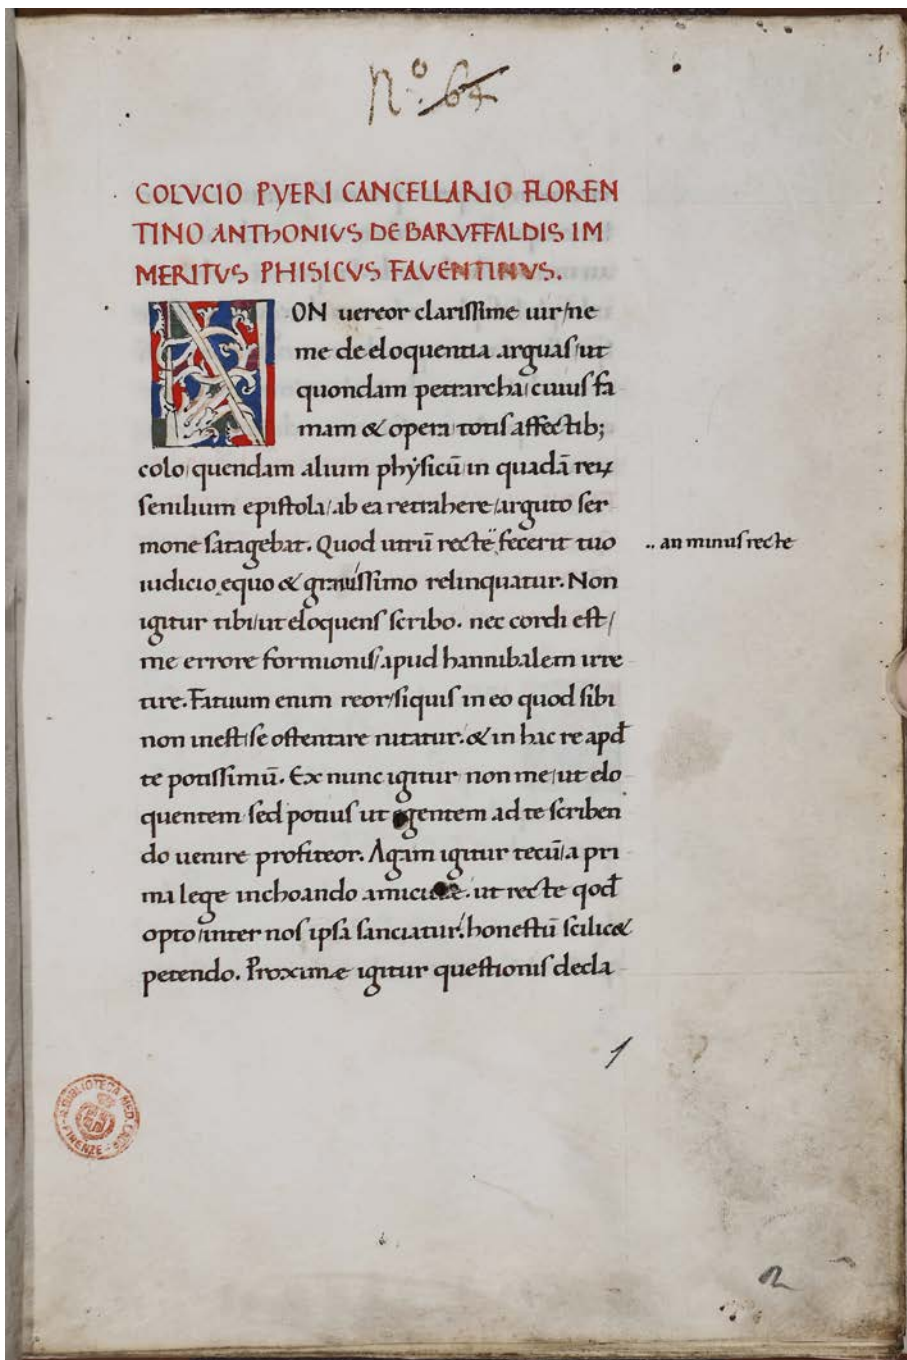 Nº. 64
COLVCIO PYERI CANCELLARIO FLOREN
TINO ANThONIVS DE BARVFFALDIS IM
MERITUS PHISICVS FAVENTINVS.
NON uereor clarissime uir/ne
me de eloquentia arguas/ut
quondam petrarcha/cuius fa
mam & opera totis affectib;
colo/quendam alium phẏsicū/in quadā reꝝ
senilium epistola/ab ea retrahere/arguto ser
mone satagebat. Quod utrū recte fecerit tuo
.. an minus recte
iudicio equo & grauissimo relinquatur. Non
igitur tibi/ut eloquens scribo. nec cordi est/
me errore formionis/apud hannibalem irre
tire. Fatuum enim reor/siquis in eo quod sibi
non inest/se ostentare nitatur. & in hac re apđ
te potissimū. Ex nunc igitur non me/ut elo
quentem sed potius ut egentem ad te scriben
do uenire profiteor. Agam igitur tecū/a pri
ma lege inchoando amicitiæ. ut recte qođ
opto/inter nos ipsa sanciatur. honestū scilic&
petendo. Proximæ igitur questionis decla
1
R. BIBLIOTECA MED. LAUR.
FIRENZE